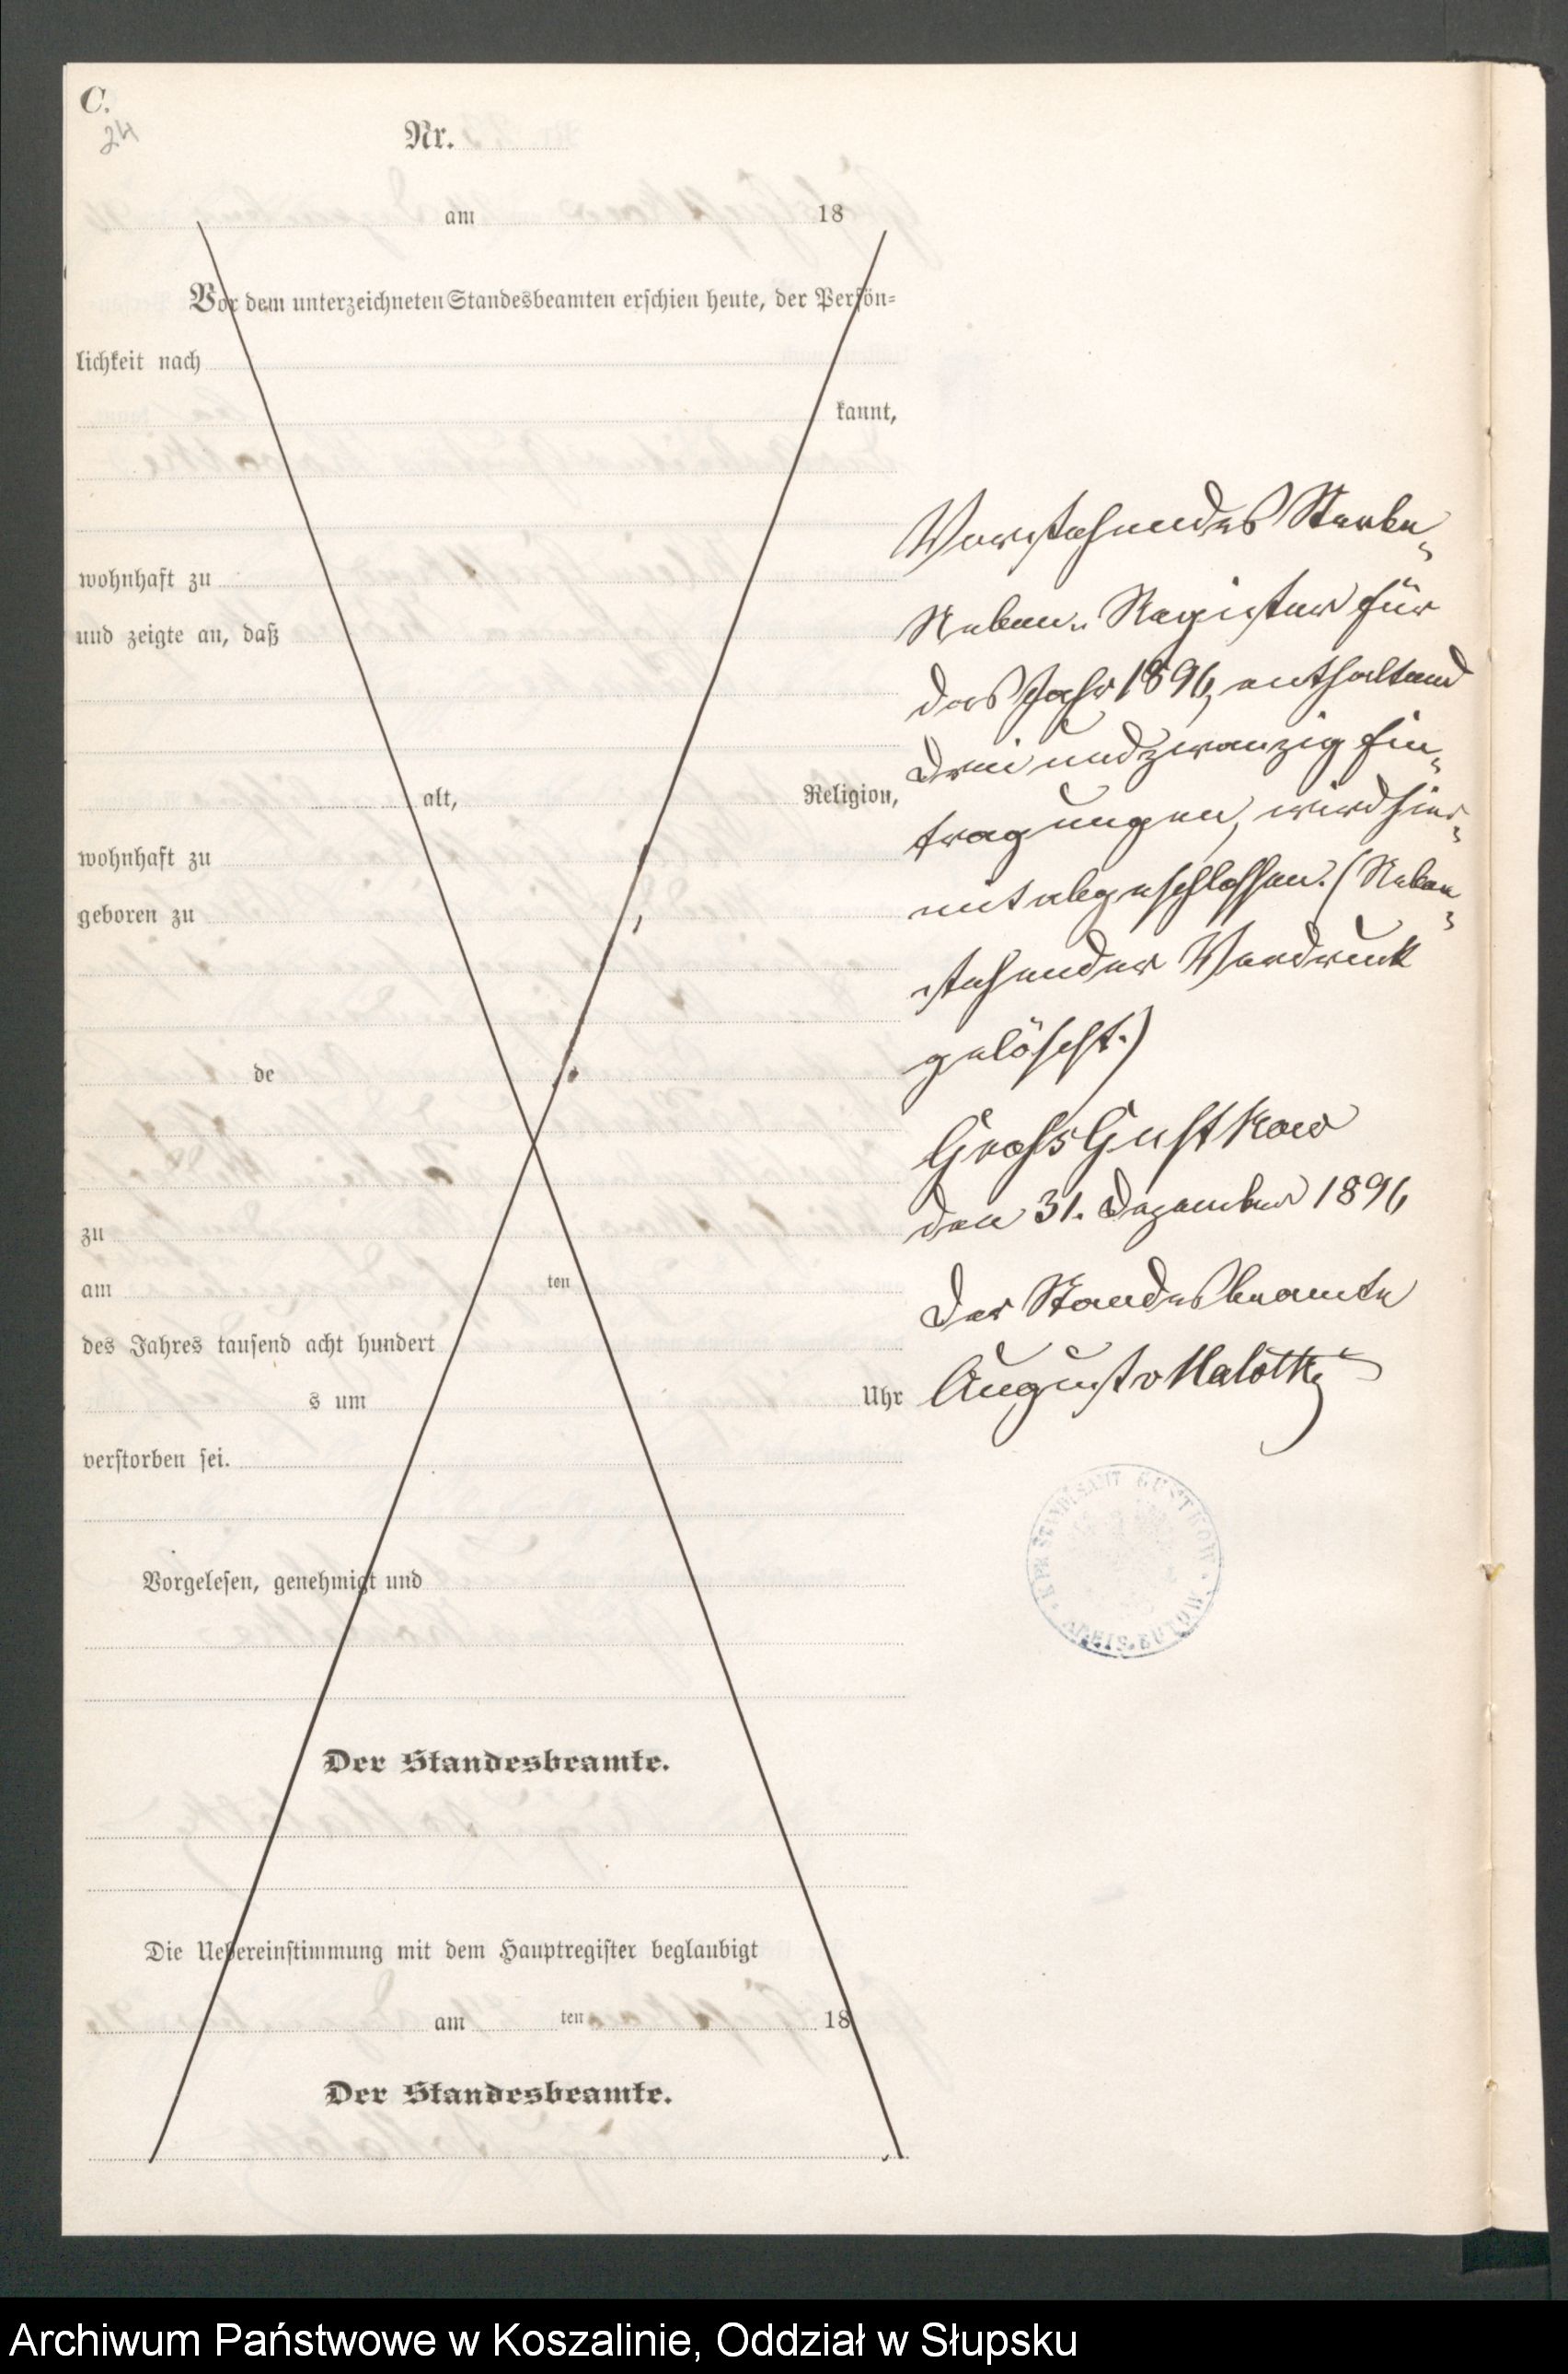 C.
24
Nr.
am 18
Vor dem unterzeichneten Standesbeamten erschien heute, der Persön=
lichkeit nach
kannt,
wohnhaft zu
und zeigte an, daß
alt, Religion,
wohnhaft zu
geboren zu
de
zu
am ten
des Jahres tausend acht hundert
s um Uhr
verstorben sei.
Vorgelesen, genehmigt und
Der Standesbeamte.
Die Uebereinstimmung mit dem Hauptregister beglaubigt
am ten 18
Der Standesbeamte.
Vorstehendes Sterbe-
Neben-Register für
das Jahr 1896, enthaltend
drei und zwanzig Ein-
tragungen, wird hier-
mit abgeschlossen. (Neben-
stehender Vordruck
gelöscht.)
Gross Gustkow
den 31. Dezember 1896
Der Standesbeamte
August v Malottky
STANDESAMT GUSTKOW
Archiwum Państwowe w Koszalinie, Oddział w Słupsku